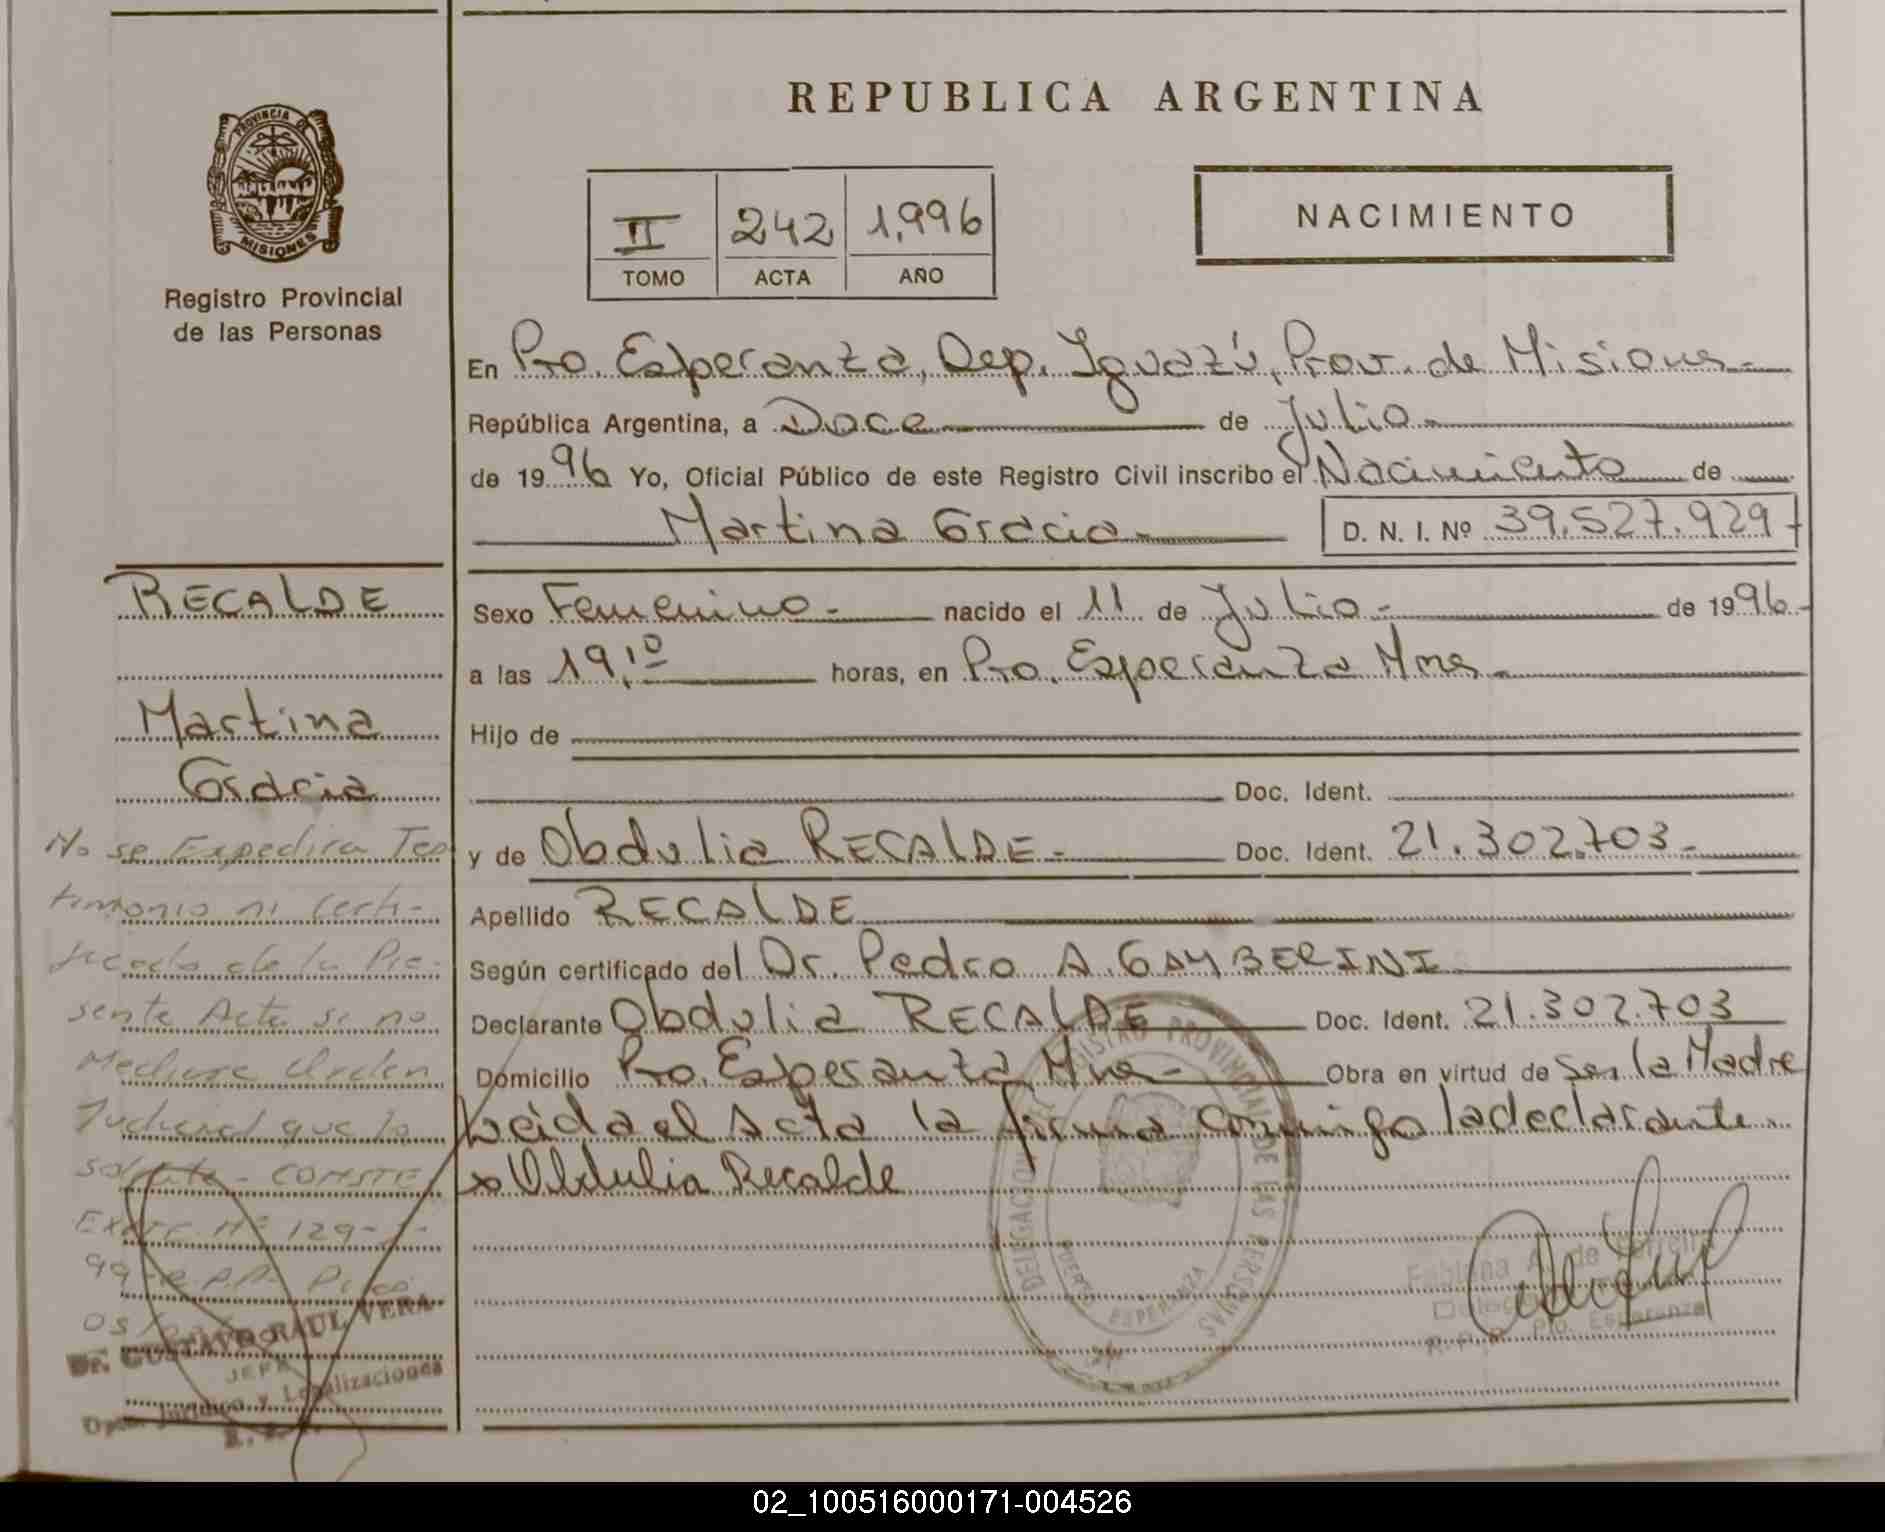 REPUBLICA ARGENTINA
PROVINCIA DE
MISIONES
Registro Provincial
de las Personas
II 242 1,996
TOMO ACTA AÑO
NACIMIENTO
En Pto. Esperanza, Dep. Iguazú, Prov. de Misiones
República Argentina, a Doce de Julio
de 1996 Yo, Oficial Público de este Registro Civil inscribo el Nacimiento de
Martina Gracia D. N. I. Nº 39.527.929
RECALDE
Martina
Gracia
No se Expedira Tes
timonio ni Certi-
ficado de la Pre-
sente Acta si no
Mediare Orden
Judicial que lo
solicite - CONSTE
Expte. Nº 129-
99 - R.P.P.
Dr. GUSTAVO RAUL VERA
JEFE
Dpto. Jurídico y Legalizaciones
Sexo Femenino - nacido el 11 de Julio - de 1996 -
a las 19,10 horas, en Pto. Esperanza Mnes -
Hijo de
Doc. Ident.
y de Obdulia RECALDE - Doc. Ident. 21.302.703 -
Apellido RECALDE
Según certificado del Dr. Pedro A. GAMBERINI
Declarante Obdulia RECALDE Doc. Ident. 21.302.703
Domicilio Pto. Esperanza, Mnes - Obra en virtud de Ser la Madre
Leida el Acta la firma conmigo la declarante
Obdulia Recalde
REGISTRO PROVINCIAL DE LAS PERSONAS
DELEGACION
PUERTO ESPERANZA
Fabiana A. de
R.P.P. Pto. Esperanza
02_100516000171-004526